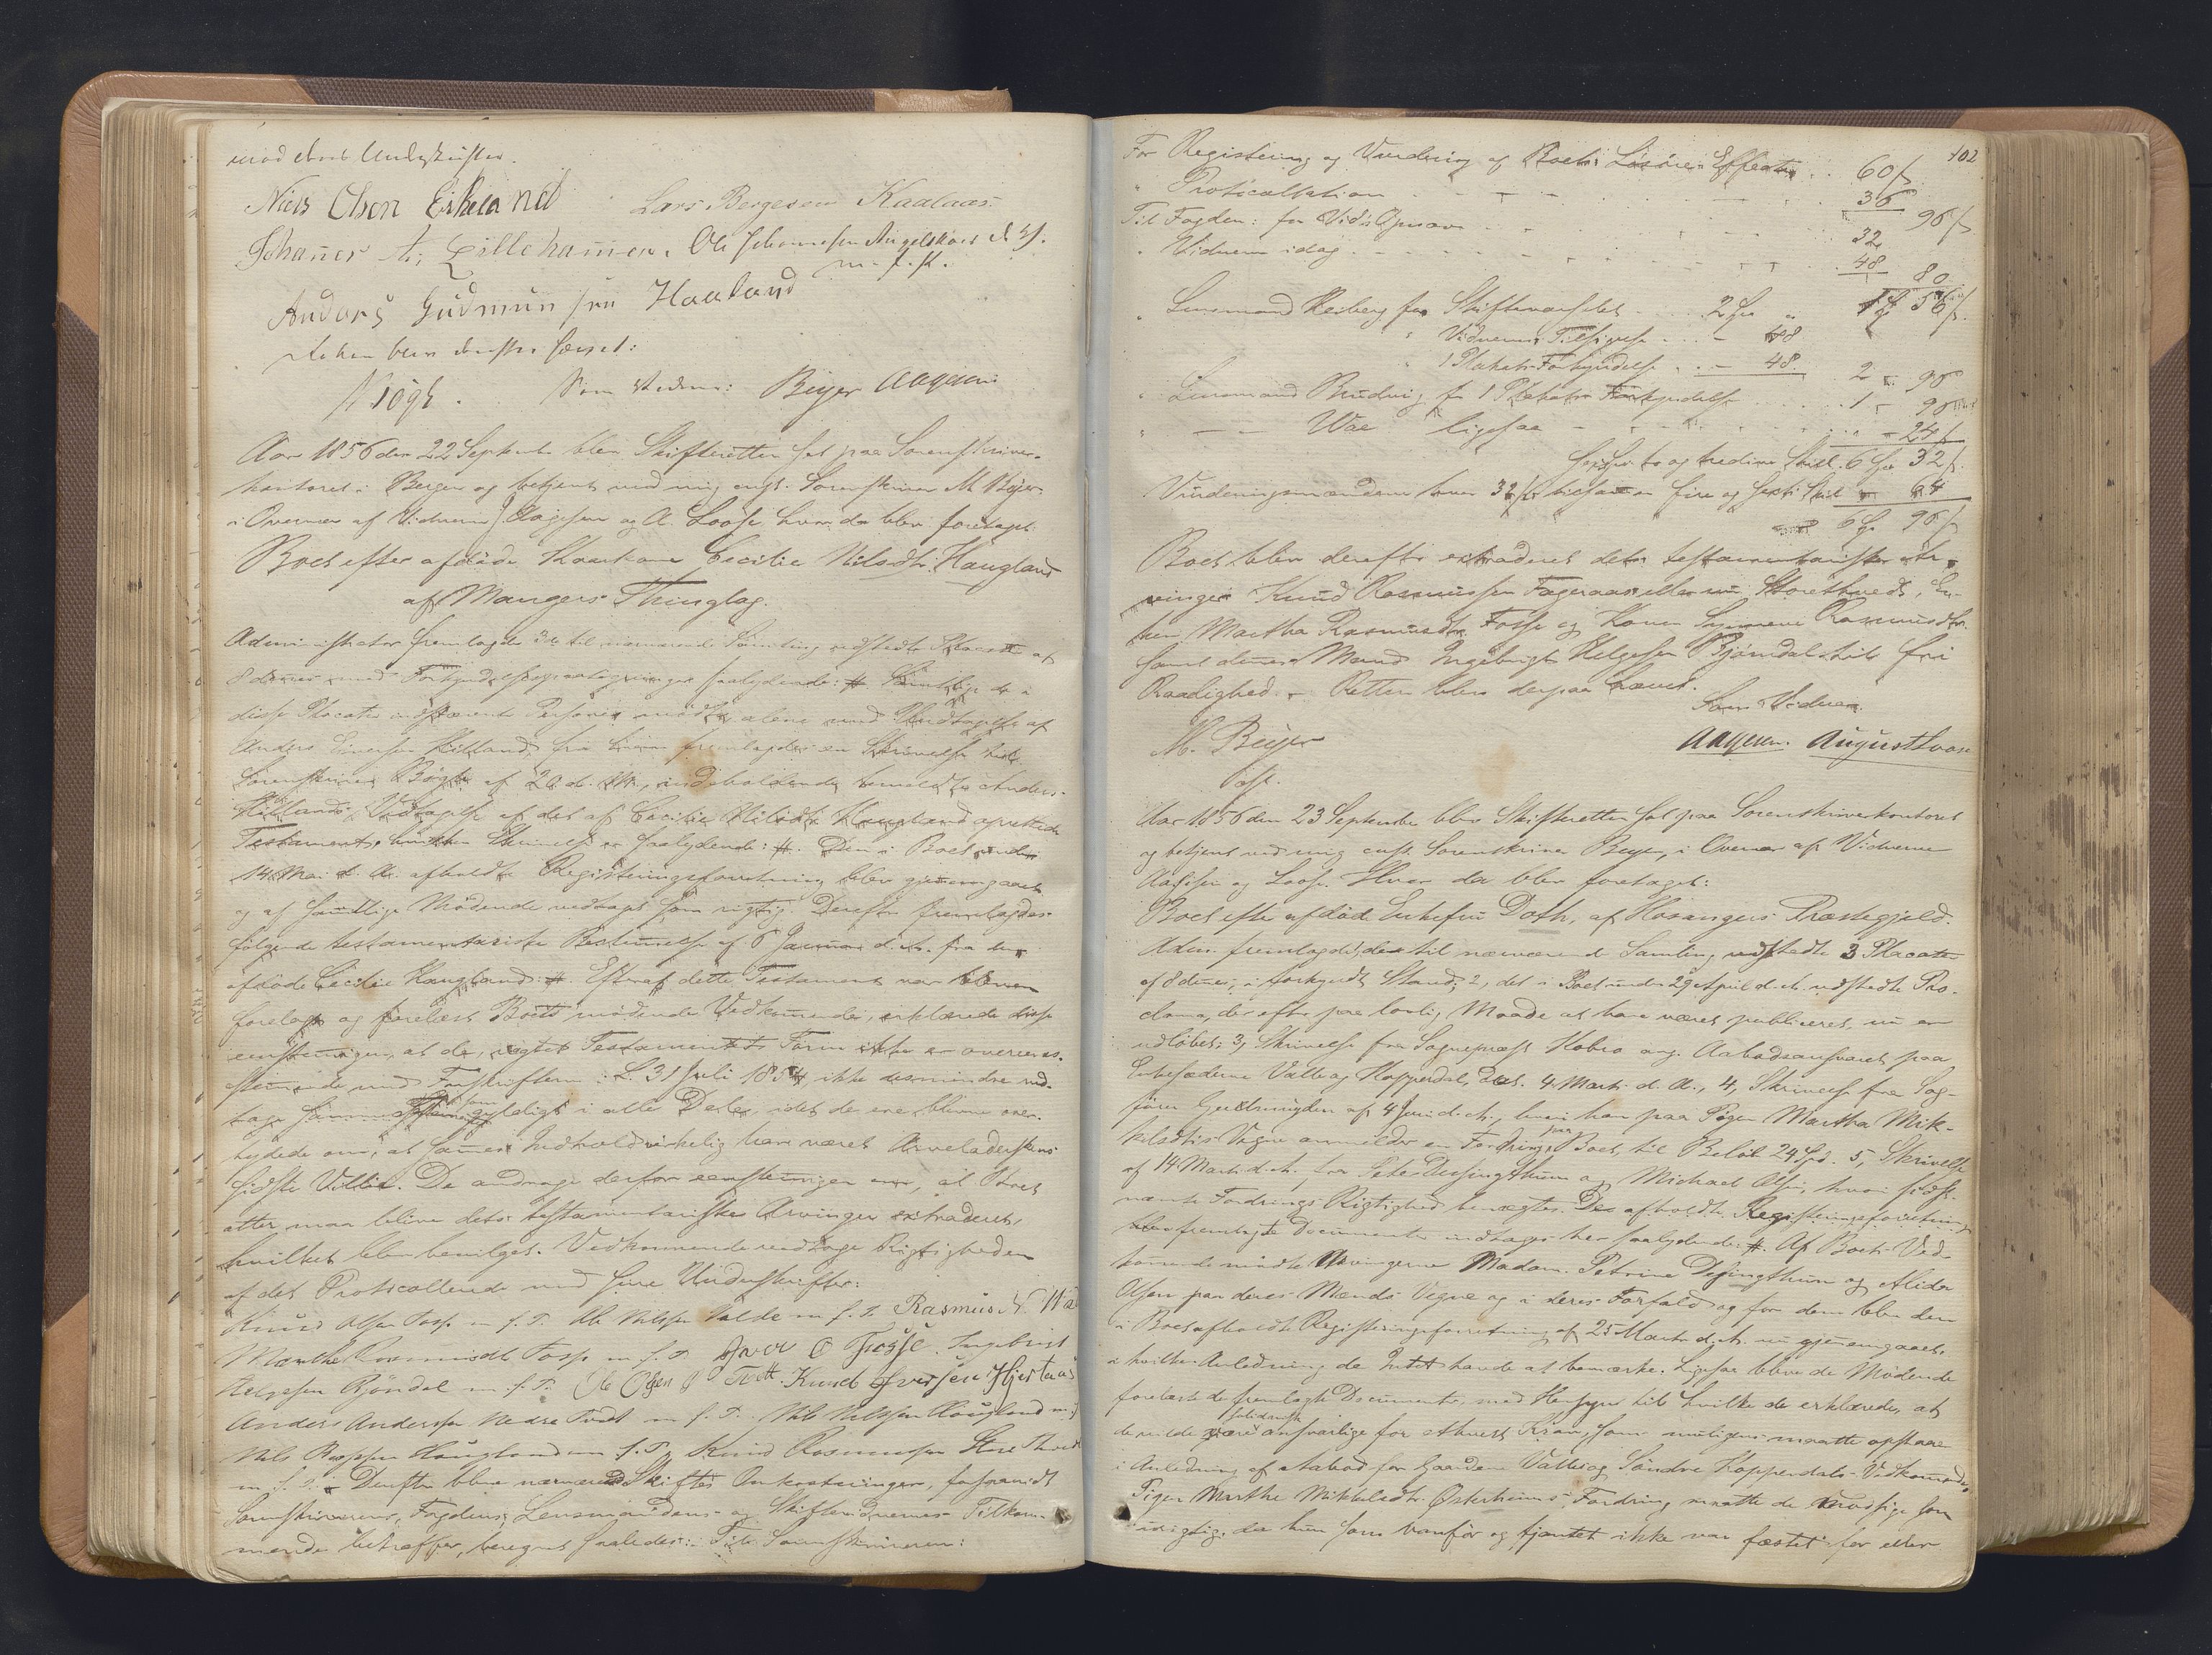 med deres Underskrifter.
Niels Olsen Eikeland Lars Bergesen Kaalaas.
Johanes A: Lillehamer. Ole Johannesen
m. f. P.
Anders Gudmunsen Haaland
blev derefter hævet:
Krogh. Som Vidner: Beyer Aagesen
Aar 1856 den 22 Septembr blev Skifteretten sat paa Sorenskriver-
kontoret i Bergen og betjent ved mig const. Sorenskriver M. Beyer
i Overvær af Vidnerne Aagesen og A. Loose hvor da blev foretaget:
Boet efter afdøde Cecilie Nilsdtr. Haugland
af Mangers Thinglag.
Administrator fremlagde de til nærværende Samling udstedte Placater af
8 dennes med Forkyndelsespaategninger saalydende: #. Samtlige de i
disse Placater indstævnte Personer mødte alene med Undtagelse af
Anders fra ham fremlagdes en Skrivelse til
Sorenskriver af 20 d. M., indeholdende bemeldte Anders
Vedtagelse af det af Cecilie Nilsdtr Haugland oprettede
Testament, hvilken Skrivelse er saalydende: #. Den i Boet under
14 Mai d. A. afholdte Registreringsforretning blev gjennemgaaet
og af samtlige Mødende vedtaget som rigtig. Derefter fremlagdes
følgende testamentariske Bestemmelse af 6 Januar d. A. fra den
afdøde Cecilie Haugland: #. Efterat dette Testament var bleven
forelagt og forelæst Boets mødende Vedkommende, erklærede disse
eenstemmigen, at de, uagtet Testamentets Form ikke er overeens-
stemmende med Forskriften i L. 31 Juli 1854 ikke desmindre ved-
tage samme som gyldigt i alle Dele, idet de ere blevne over-
tydede om, at sammes Indhold virkelig have været Arveladerskens
sidste Villie. De androge derfor eenstemmigen om, at Boet
atter maa blive dets testamentariske Arvinger extraderet,
hvilket blev bevilget. Vedkommende vedtoge Rigtigheden
af det Protocollerede med sine Underskrifter:
Knud Olsen Fosse m. f. P. Ole Nilssen Valde m. f. P. Rasmus N.
Marthe Rasmusdtr Fosse m. f. P. Iver O Fosse. Ingebrigt
Helgesen Bjørndal m. f. P. Ole Olsen Knud Iversen Hjertaas
Anders Anderssen Nedre Tvedt m. f. P. Nils Nilssen Haugland m. f.
Nils Haugland m. f. P. Knud Rasmussen Storethvedt
m. f. P. Derefter bleve nærværende Skiftes Omkostninger, forsaavidt
Sorenskriverens, Fogdens, Lensmændens og Skiftevidnernes Tilkom-
mende betræffer, beregnet saaledes: Til Sorenskriveren:
102
For Registrering og Vurdering af Boets Løsøre Effecter . . 60 ß
" Protocollation . . . 36 96 ß
Til Fogden: for . . . 32
" Vidnerne idag . . . 48 80
" Lensmand Reiberg for Skiftevarslet . . . 2 Spd " 1 Spd 56 ß.
" Vidnernes Tilsigelse . . . - 48
" 1 Placats Forkyndelse . . - 48. 2 - 96
" Lensmand Brudvig for 1 Placats Forkyndelse . . . 1 - 96
" Wae ligesaa . . . - 24 ß
Sex Spd. to og tredive Skill. 6 Spd 32 ß.
Vurderingsmændene hver 32 ß tilsammen fire og sexti Skill - 64
6 Spd 96 ß
Boet blev derefter extraderet dets testamentariske Ar-
vinger Knud Rasmussen Fageraas eller nu Storethvedt, En-
ken Martha Rasmusdtr. Fosse og Konen Rasmusdtr.
samt dennes Mand Ingebrigt Helgesen Bjørndal til fri
Raadighed. Retten blev derpaa hævet.
Som Vidner.
M. Beyer Aagesen. August Loose
cst.
Aar 1856 den 23 September blev Skifteretten sat paa Sorenskriverkontoret
og betjent ved mig cnst. Sorenskriver Beyer, i Overvær af Vidnerne
Aagesen og Loose. Hvor da blev foretaget:
Boet efter afdøde Enkefru Doth, af Hosangers Præstegjeld.
Adm. fremlagde 1, de til nærværende Samling udstedte 3 Placater
af 8 dennes, i forkyndt Stand; 2, det i Boet under 29 April d. A. udstedte Pro-
clama, der efter paa lovlig Maade at have været publiceret, nu er
udløbet; 3, Skrivelse fra Sognepræst Kobro ang. Aabodsansvaret paa
Enkesæderne Valle og Hopperdal, dat. 4 Marts d. A., 4, Skrivelse fra Sag-
fører af 4 Juni d. A., hvori han paa Pigen Martha Mik-
kelsdtrs Vegne anmelder en Fordring paa Boet, til Beløb 24 Spd. 5, Skrivelse
af 14 Marts d. A. fra Peter og Michael Olsen, hvori sidst-
nævnte Fordrings Rigtighed benægtes. De afholdte Registreringsforretning
fremlagte Documenter indtages her saalydende: #. Af Boets Ved-
kommende mødte Arvingerne Madam Petrine og Alida
Olsen paa deres Mænds Vegne og i deres Forfald og for dem blev den
i Boet afholdte Registreringsforretning af 25 Marts d. A. nu gjennemgaaet,
i hvilken Anledning de Intet havde at bemærke. Ligesaa bleve de Mødende
forelæst de fremlagte Documenter, med Hensyn til hvilke de erklærede, at
de vilde være solidarisk ansvarlige for ethvert Krav, som muligens maatte opstaae
i Anledning af Aabod for Gaardene Valle og Søndre Hopperdal. Vedkommende
Pigen Marthe Mikkelsdtr. Østerheims Fordring maatte de modsige som
urigtig, da hun som vanfør og tjent ikke var fæstet for eller